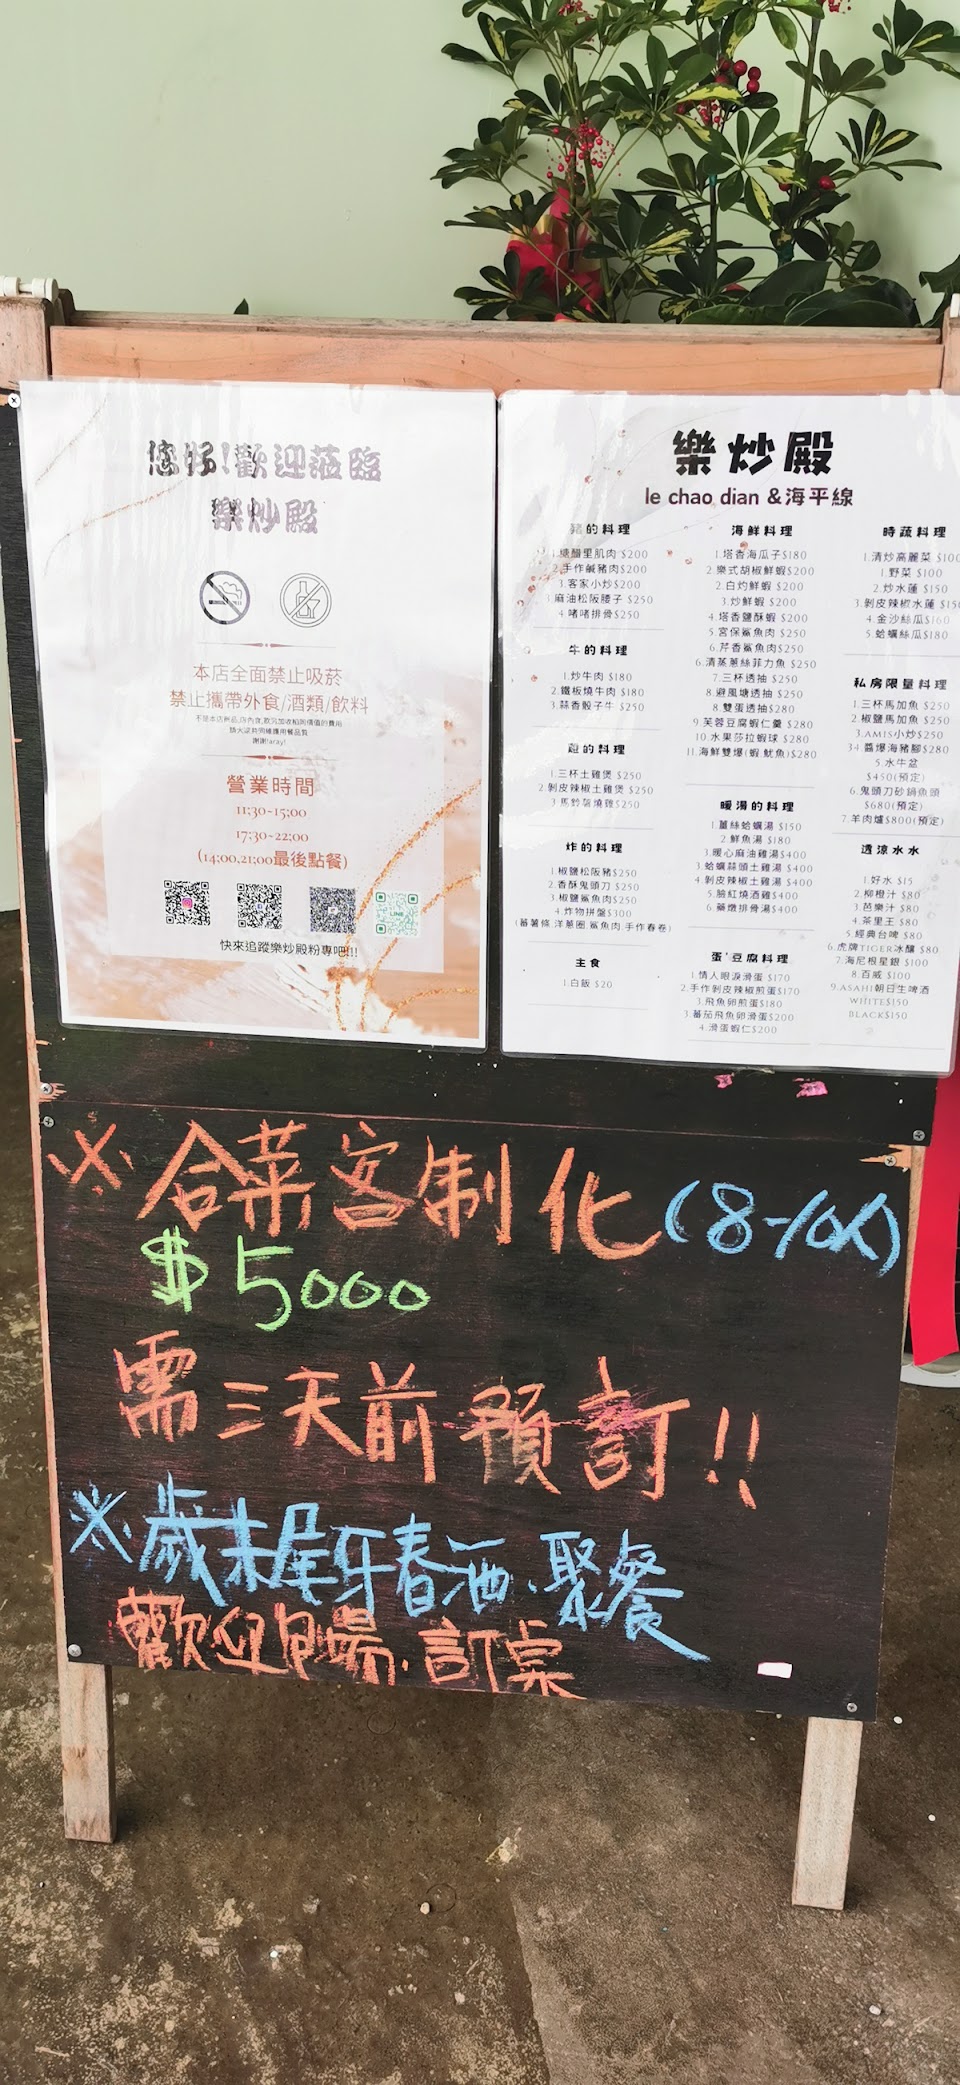 您好!歡迎蒞臨
樂炒殿
本店全面禁止吸菸
禁止攜帶外食/酒類/飲料
謝謝!aray!
營業時間
11:30-15:00
17:30-22:00
(14:00,21:00最後點餐)
LINE
快來追蹤樂炒殿粉專吧!!!
樂炒殿
le chao dian &海平線
豬的料理
1.糖醋里肌肉 $200
2.手作鹹豬肉$200
3.客家小炒$200
麻油松阪腰子 $250
4.啫啫排骨$250
牛的料理
1.炒牛肉 $180
2.鐵板燒牛肉 $180
3.蒜香骰子牛 $250
的料理
1.三杯土雞煲 $250
2.剝皮辣椒土雞煲 $250
3.馬鈴薯燒雞$250
炸的料理
1.椒鹽松阪豬$250
2.香酥鬼頭刀 $250
3.椒鹽鯊魚肉$250
4.炸物拼盤$300
(蕃薯條 洋蔥圈 鯊魚肉 手作春卷)
主食
1.白飯 $20
海鮮料理
1.塔香海瓜子$180
2.樂式胡椒鮮蝦$200
2.白灼鮮蝦 $200
3.炒鮮蝦 $200
4.塔香鹽酥蝦 $200
5.宮保鯊魚肉 $250
6.芹香鯊魚肉$250
6.清蒸蔥絲菲力魚 $250
7.三杯透抽 $250
8.避風塘透抽 $250
8.雙蛋透抽$280
9.芙蓉豆腐蝦仁羹 $280
10.水果莎拉蝦球 $280
11.海鮮雙爆(蝦 魷魚)$280
暖湯的料理
1.薑絲蛤蠣湯 $150
2.鮮魚湯 $180
3.暖心麻油雞湯$400
3.蛤蠣蒜頭土雞湯 $400
4.剝皮辣椒土雞湯 $400
5.臉紅燒酒雞$400
6.藥燉排骨湯$400
蛋‧豆腐料理
1.情人眼淚滑蛋 $170
2.手作剝皮辣椒煎蛋$170
3.飛魚卵煎蛋$180
3.蕃茄飛魚卵滑蛋$200
4.滑蛋蝦仁$200
時蔬料理
1.清炒高麗菜 $100
1.野菜 $100
2.炒水蓮 $150
3.剝皮辣椒水蓮 $150
4.金沙絲瓜$160
5.蛤蠣絲瓜$180
私房限量料理
1.三杯馬加魚 $250
2.椒鹽馬加魚 $250
3.AMIS小炒$250
34.醬爆海豬腳$280
5.水牛盆
$450(預定)
6.鬼頭刀砂鍋魚頭
$680(預定)
7.羊肉爐$800(預定)
透涼水水
1.好水 $15
2.柳橙汁 $80
3.芭樂汁 $80
4.茶里王 $80
5.經典台啤 $80
6.虎牌TIGER冰釀 $80
7.海尼根星銀 $100
8.百威 $100
9.ASAHI朝日生啤酒
WHITE$150
BLACK$150
※合菜客制化(8-10人)
$5000
需三天前預訂!!
※歲末尾牙春酒、聚餐
歡迎包場、訂桌